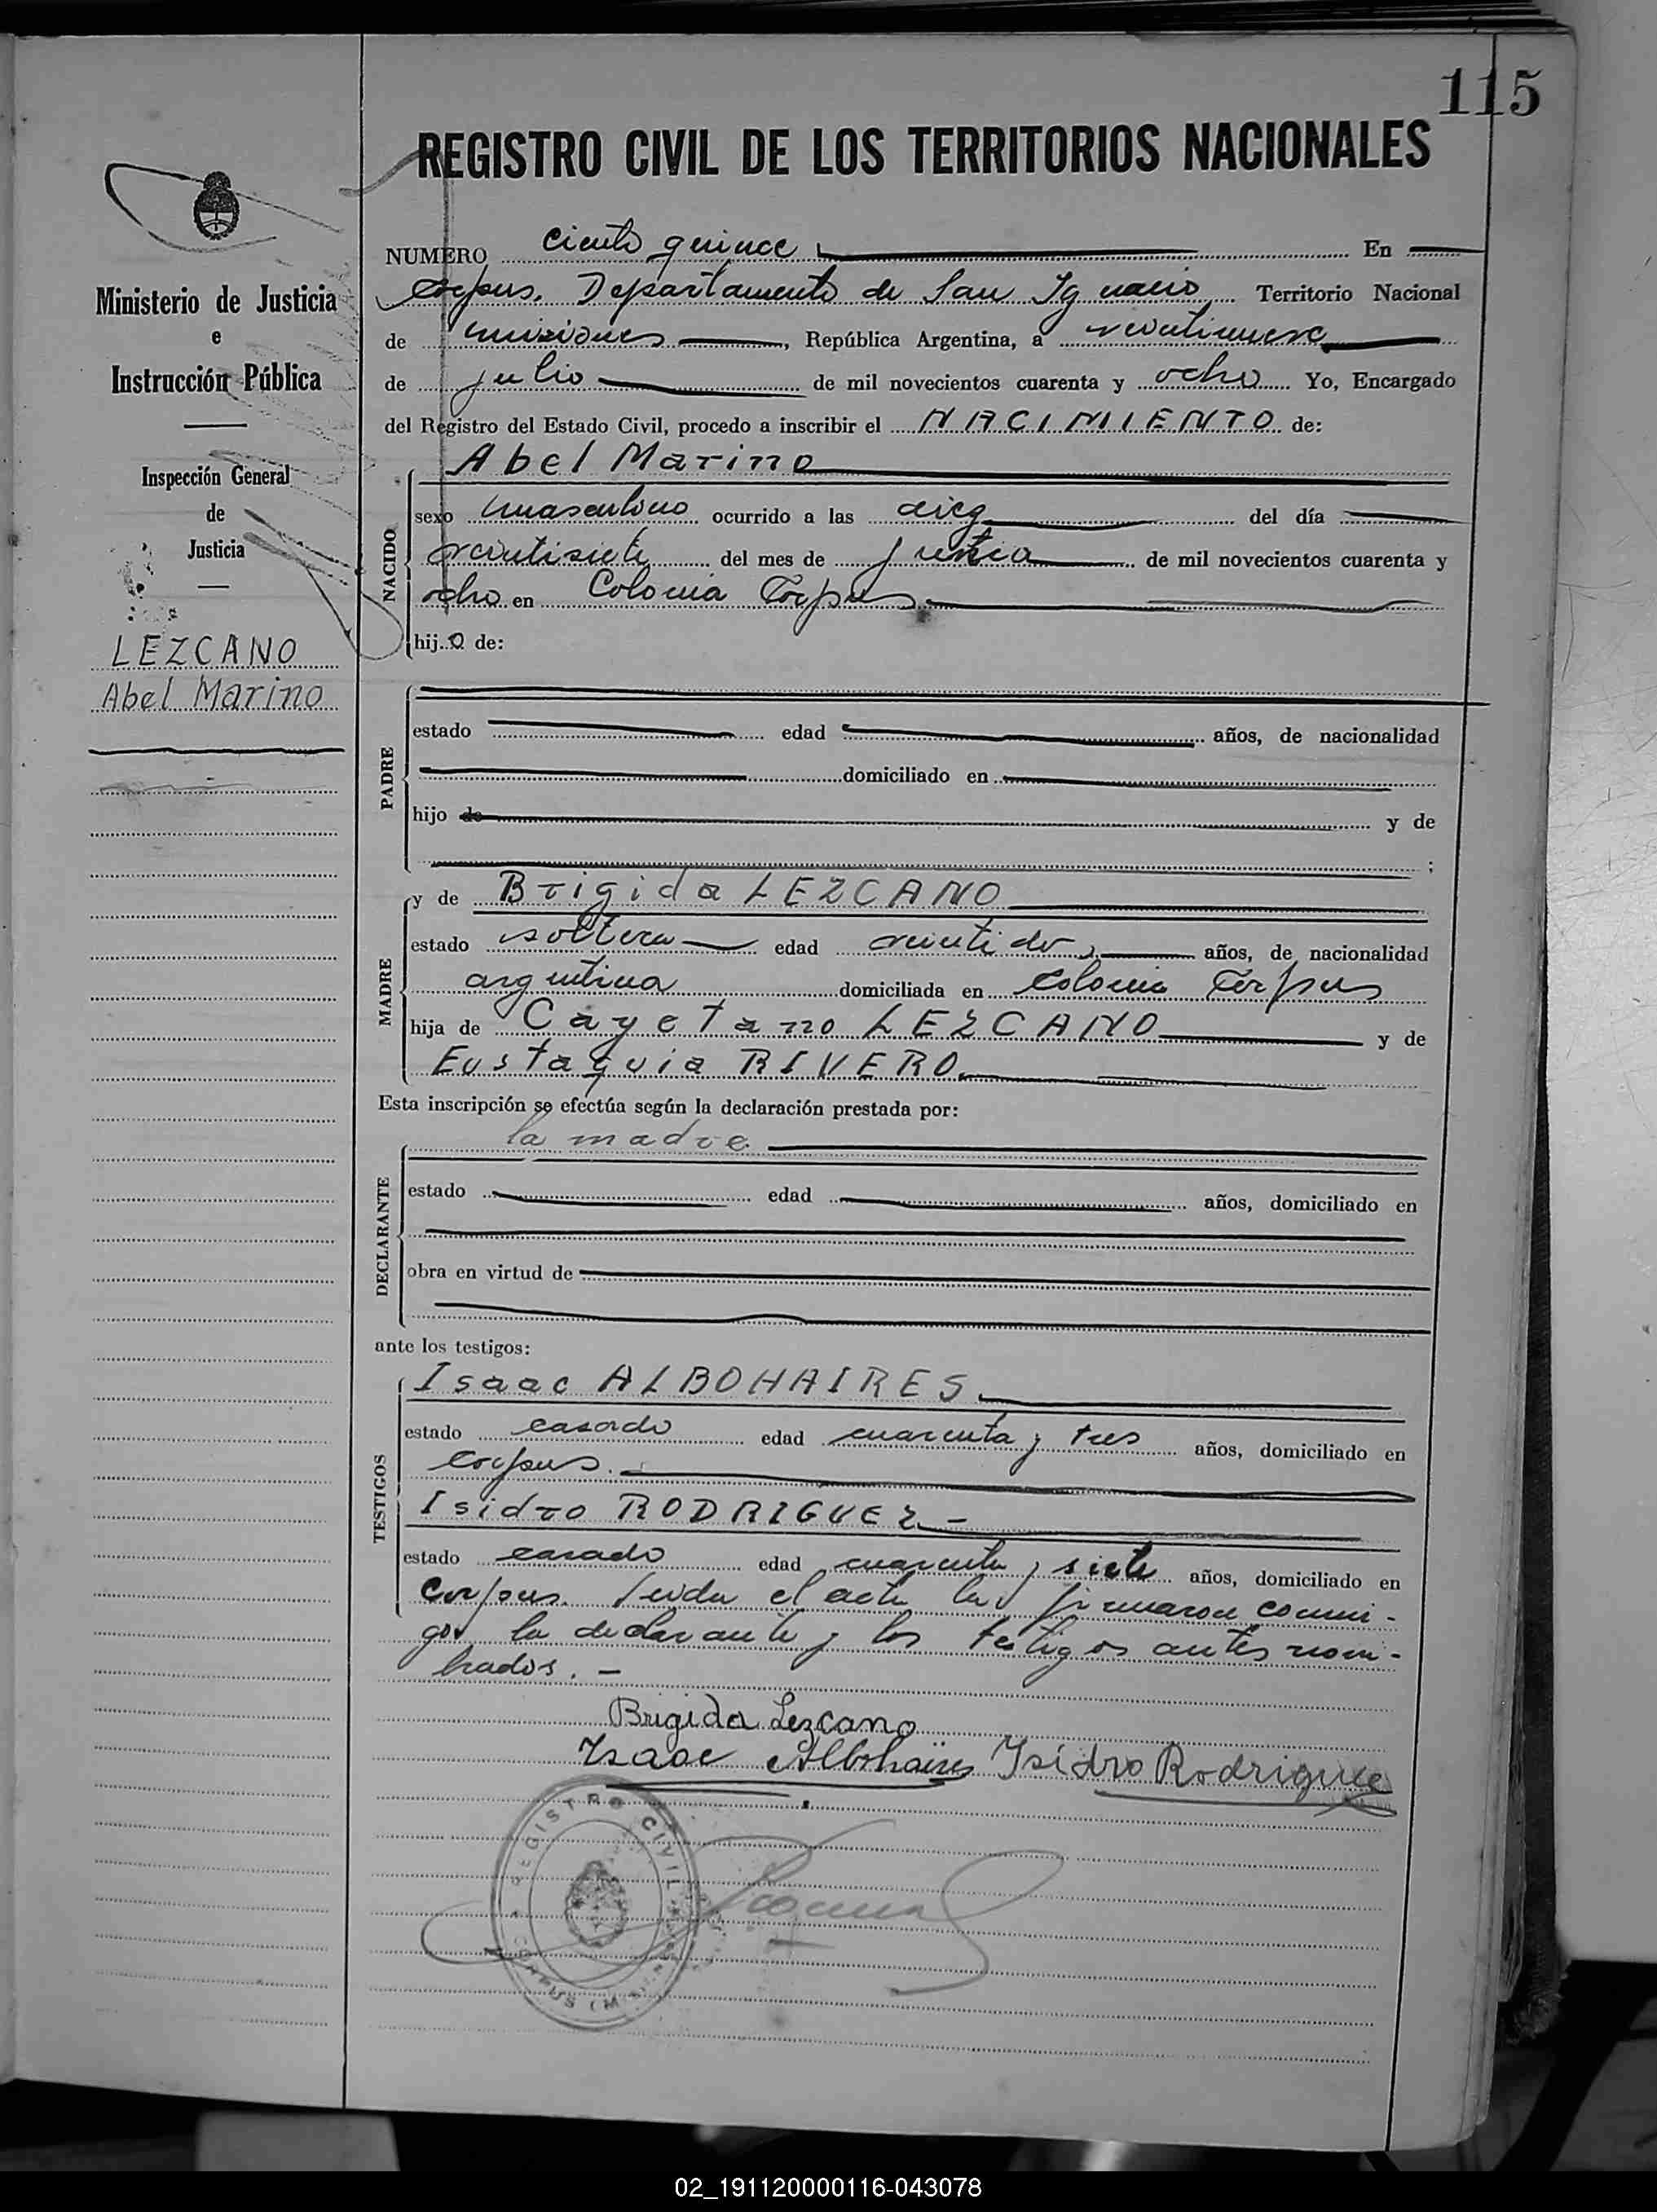 115
REGISTRO CIVIL DE LOS TERRITORIOS NACIONALES
Ministerio de Justicia
e
Instrucción Pública
Inspección General
de
Justicia
LEZCANO
Abel Marino
NUMERO ciento quince En
Corpus. Departamento de San Ignacio Territorio Nacional
de misiones, República Argentina, a veintinueve
de julio de mil novecientos cuarenta y ocho Yo, Encargado
del Registro del Estado Civil, procedo a inscribir el NACIMIENTO de:
Abel Marino
NACIDO
sexo masculino ocurrido a las diez del día
veintisiete del mes de de mil novecientos cuarenta y
ocho en Colonia Corpus
hijo de:
PADRE
estado edad años, de nacionalidad
domiciliado en
hijo de y de
;
MADRE
y de Brigida LEZCANO
estado soltera edad veintidos años, de nacionalidad
argentina domiciliada en Colonia Corpus
hija de Cayetano LEZCANO y de
Eustaquia RIVERO
Esta inscripción se efectúa según la declaración prestada por:
la madre
DECLARANTE
estado edad años, domiciliado en
obra en virtud de
ante los testigos:
TESTIGOS
Isaac ALBOHAIRES
estado casado edad cuarenta y tres años, domiciliado en
Corpus.
Isidro RODRIGUEZ -
estado casado edad cuarenta y siete años, domiciliado en
Corpus. Leida el acta la firmaron conmi-
go la declarante y los testigos antes nom-
brados. -
Brigida Lezcano
Isaac Albohaires Isidro Rodriguez
REGISTRO CIVIL
CORPUS (MISIONES)
02_191120000116-043078